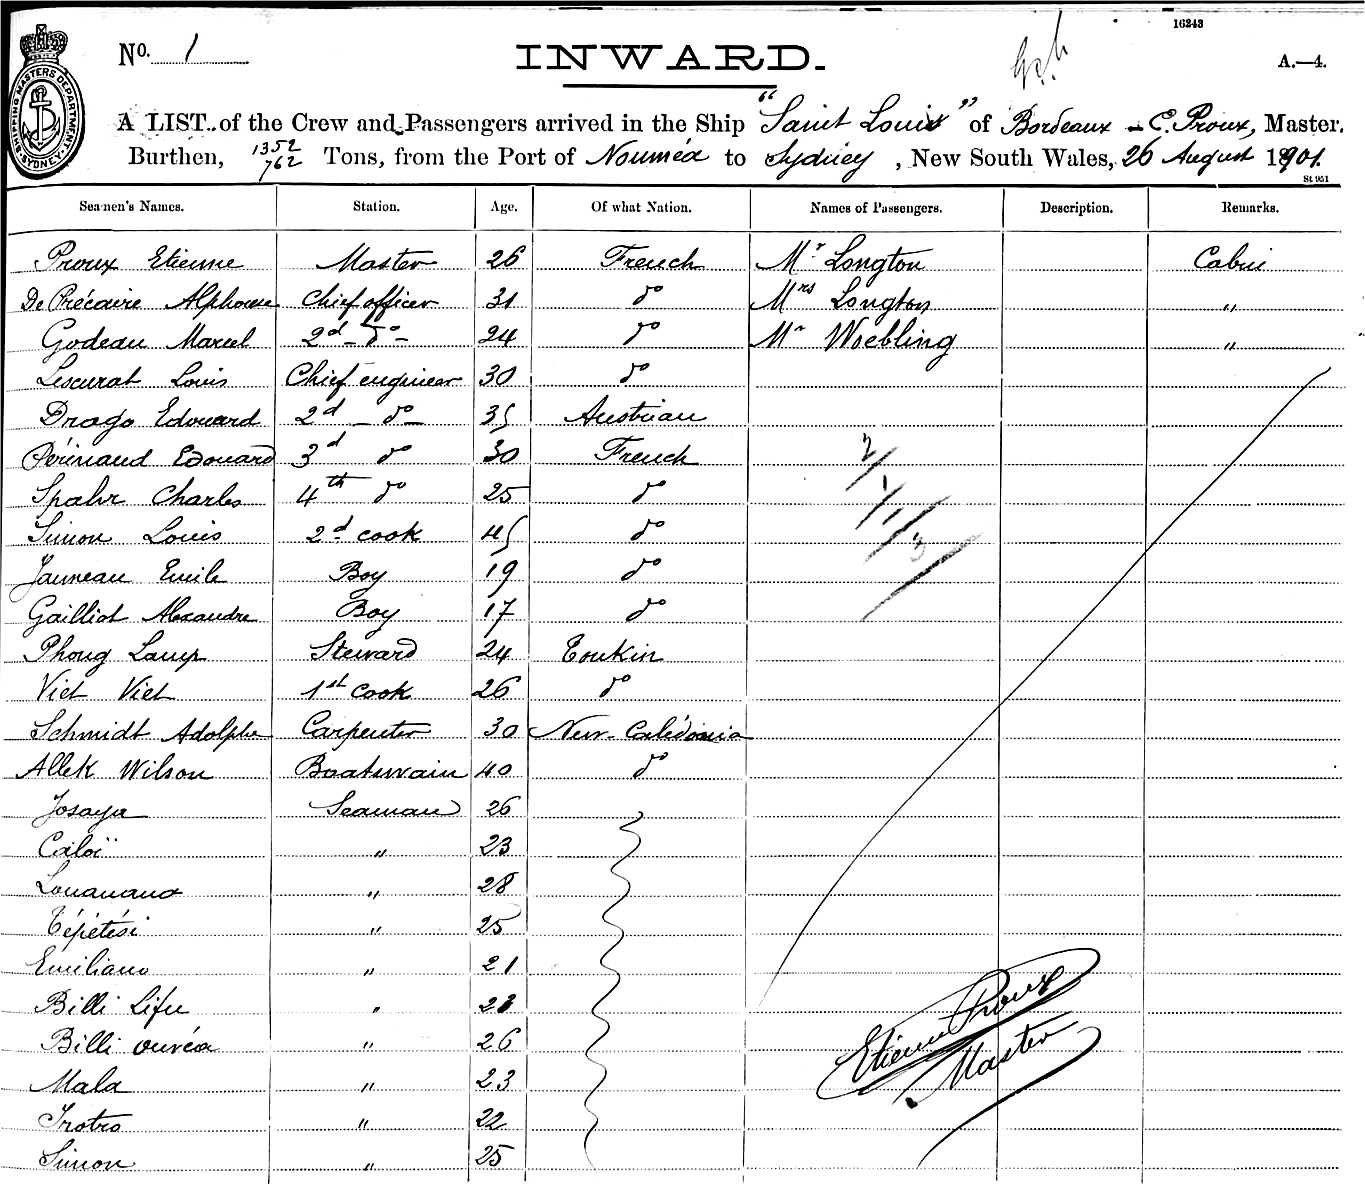 16243
No. 1
INWARD.
A.—4.
SHIPPING MASTERS DEPARTMENT SYDNEY
A LIST of the Crew and Passengers arrived in the Ship "Saint Louis" of Bordeaux - E. Proux, Master,
Burthen, 1352/762 Tons, from the Port of Nouméa to Sydney, New South Wales, 26 August 1901.
St 951
Seamen's Names. Station. Age. Of what Nation. Names of Passengers. Description. Remarks.
Proux Etienne Master 26 French Mr Longton Cabin
De Précaire Alphonse Chief officer 31 do Mrs Longton "
Godeau Marcel 2d - do - 24 do Mr Woebling "
Lescurat Louis Chief engineer 30 do
Drago Edouard 2d - do - 35 Austrian
Périnaud Edouard 3d do 30 French
Spahr Charles 4th do 25 do
Simon Louis 2d cook 45 do
Jauneau Emile Boy 19 do
Gailliot Alexandre Boy 17 do
Phoug Lamp Steward 24 Tonkin
Viet Viet 1st cook 26 do
Schmidt Adolphe Carpenter 30 New-Calédonia
Allek Wilson Boatswain 40 do
Josaya Seaman 26
Caloï " 23
Louanano " 28
Tépétési " 25
Emiliano " 21
Billi Lifu "
Billi ouvéa " 26
Mala " 23
Trotro " 22
Simon " 25
2/
1/
1/
3
Etienne Proux
Master